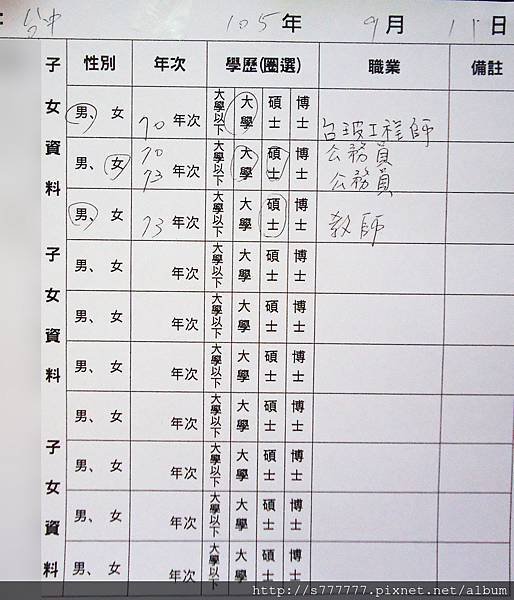 : 台中 105年 9月 11日
子女資料 性別 年次 學歷(圈選) 職業 備註
男、女 70年次 大學以下 大學 碩士 博士 台玻工程師
男、女 70 73年次 大學以下 大學 碩士 博士 公務員 公務員
男、女 73年次 大學以下 大學 碩士 博士 教師
子女資料
男、女 年次 大學以下 大學 碩士 博士
男、女 年次 大學以下 大學 碩士 博士
男、女 年次 大學以下 大學 碩士 博士
男、女 年次 大學以下 大學 碩士 博士
子女資料
男、女 年次 大學以下 大學 碩士 博士
男、女 年次 大學以下 大學 碩士 博士
男、女 年次 大學以下 大學 碩士 博士
http://s777777.pixnet.net/album